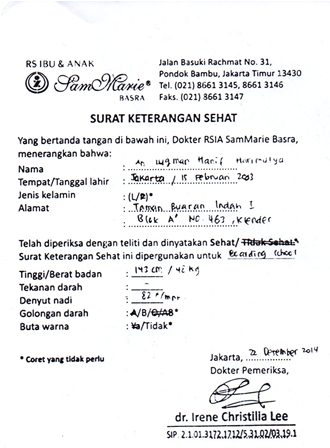 RS IBU & ANAK
SamMarie®
BASRA
Jalan Basuki Rachmat No. 31,
Pondok Bambu, Jakarta Timur 13430
Tel. (021) 8661 3145, 8661 3146
Faks. (021) 8661 3147
SURAT KETERANGAN SEHAT
Yang bertanda tangan di bawah ini, Dokter RSIA SamMarie Basra,
menerangkan bahwa:
Nama : An Luqman Hanif
Tempat/Tanggal lahir : Jakarta / 15 Februari 2003
Jenis kelamin : (L/P)*
Alamat : Taman Buaran Indah I
Blok A' NO. 463, Klender
Telah diperiksa dengan teliti dan dinyatakan Sehat/ Tidak Sehat.*
Surat Keterangan Sehat ini dipergunakan untuk Boarding School
Tinggi/Berat badan : 143 cm / 42 kg
Tekanan darah : –
Denyut nadi : 82 x/mnt
Golongan darah : A/B/O/AB*
Buta warna : Ya/Tidak*
* Coret yang tidak perlu
Jakarta, 22 Desember 2014
Dokter Pemeriksa,
dr. Irene Christilia Lee
SIP: 2.1.01.3172.1712/5.31.02/03.19.1